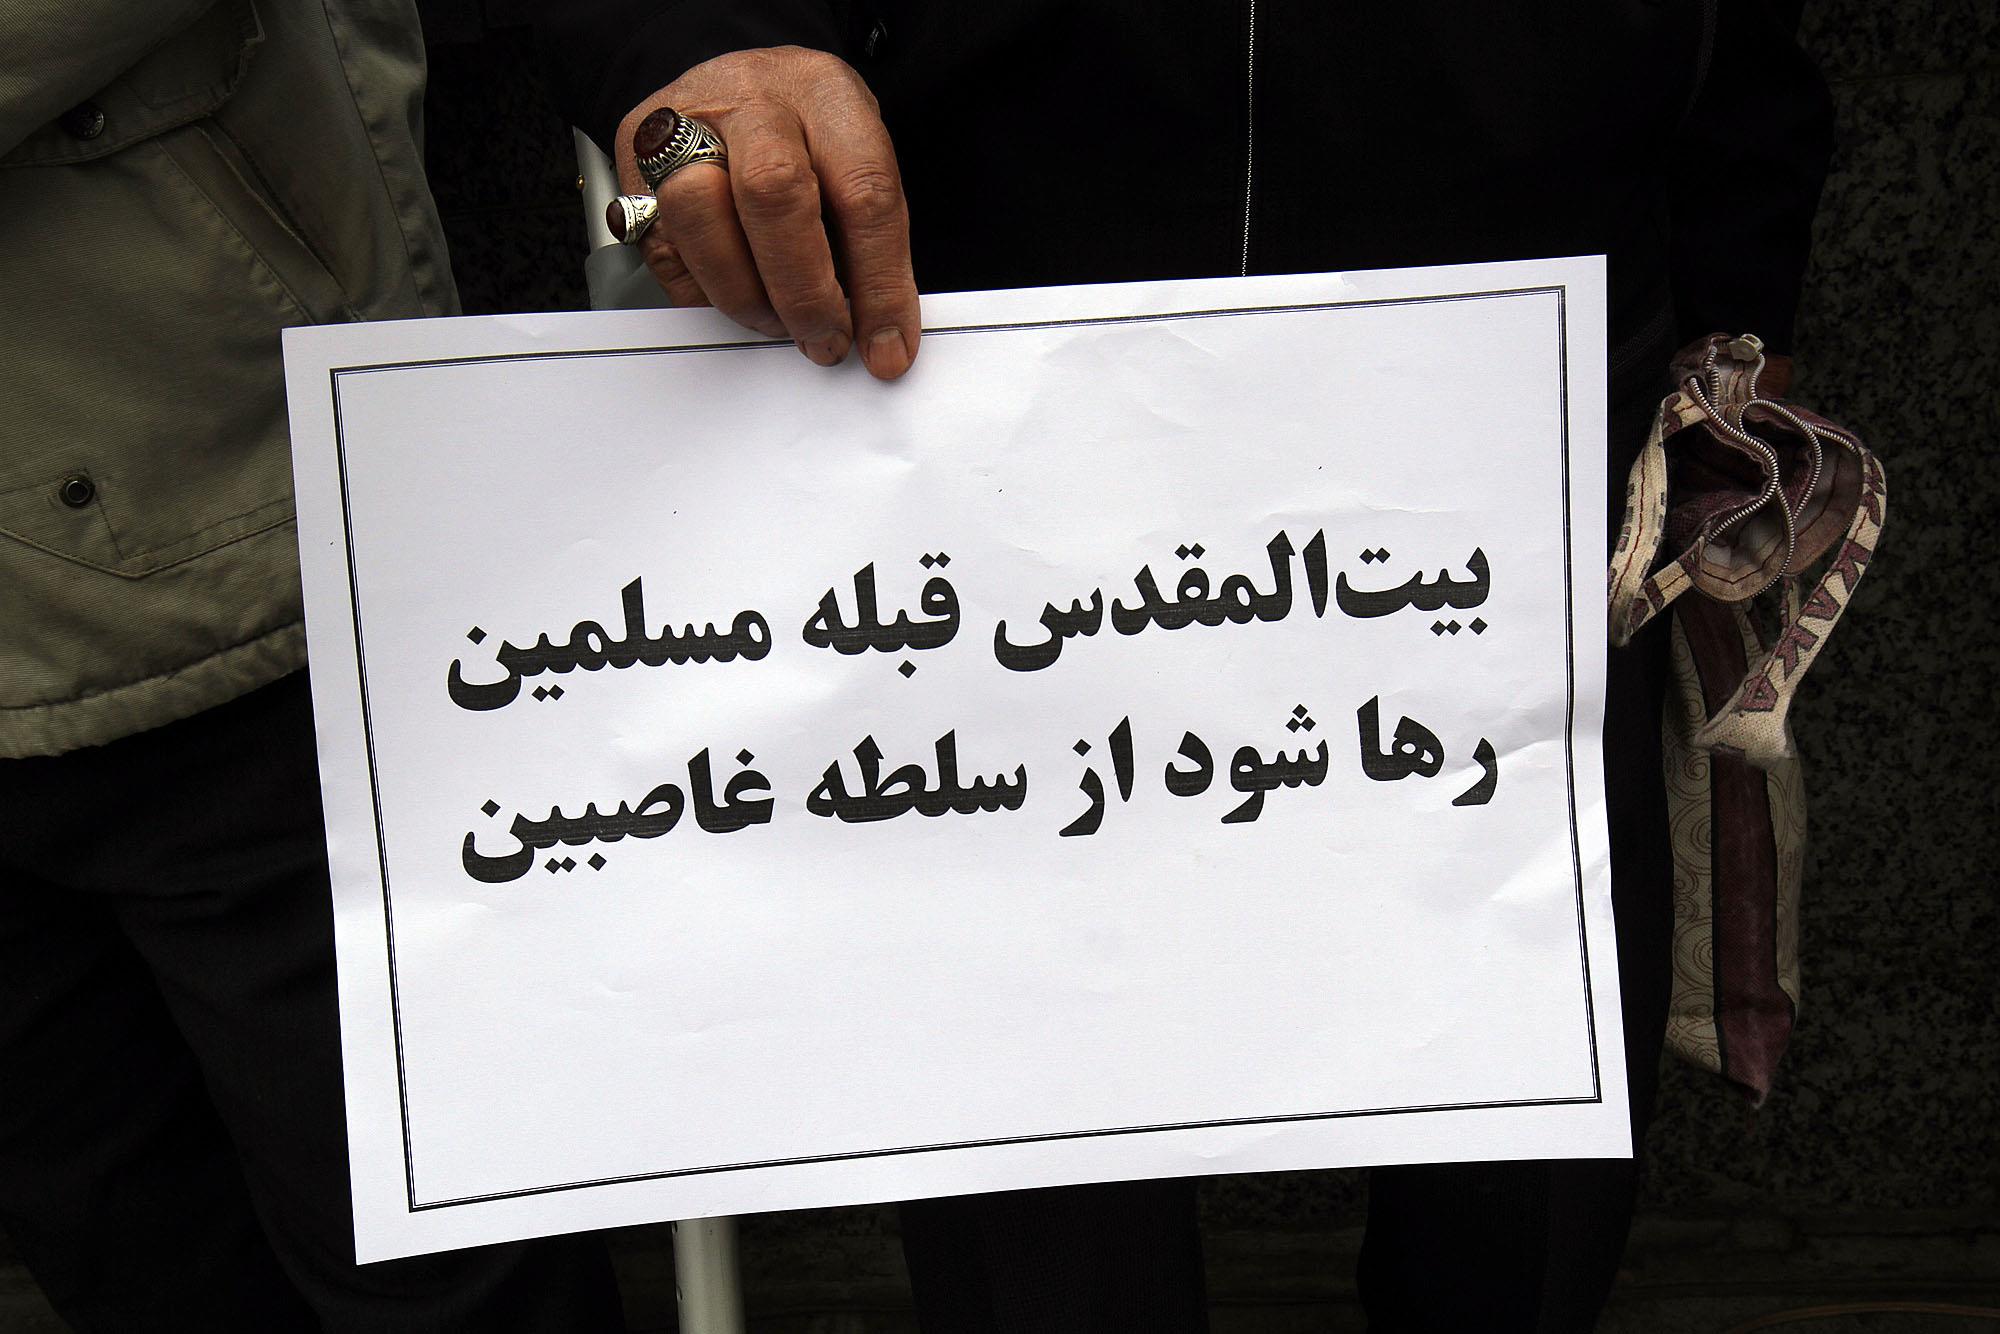 بیت‌المقدس قبله مسلمین
رها شود از سلطه غاصبین